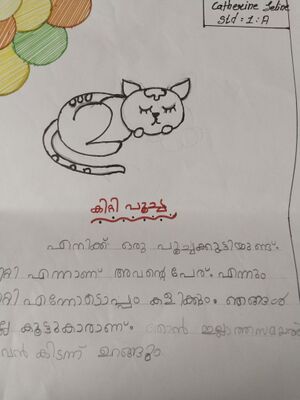 Catherine
Std : 1 : A
കിറ്റി പൂച്ച
എനിക്ക് ഒരു പൂച്ചക്കുട്ടിയുണ്ട്.
എന്നാണ് അവന്റെ പേര്. എന്നും
എന്നോടൊപ്പം കളിക്കും. ഞങ്ങൾ
കൂട്ടുകാരാണ്. ഞാൻ ഇല്ലാത്തസമയത്ത്
കിടന്ന് ഉറങ്ങും